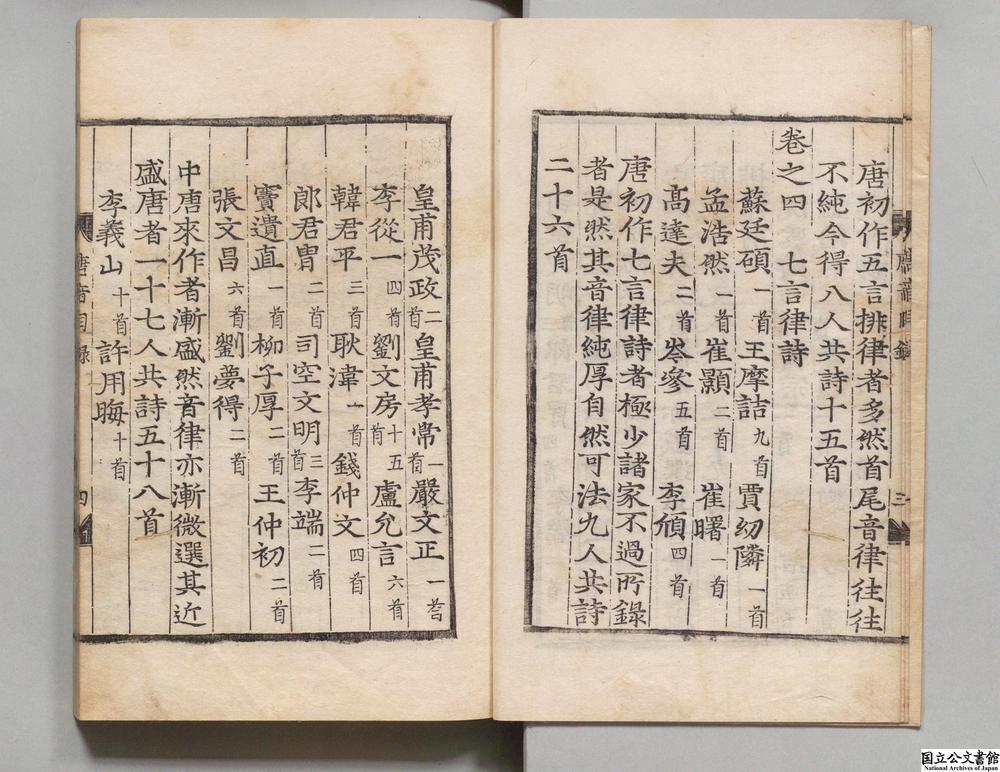 唐初作五言排律者多然首尾音律往往
不純今得八人共詩十五首
卷之四　七言律詩
蘇廷碩一首 王摩詰九首 賈幼隣一首
孟浩然一首 崔顥二首 崔曙一首
高達夫二首 岑參五首 李頎四首
唐初作七言律詩者極少諸家不過所錄
者是然其音律純厚自然可法九人共詩
二十六首
皇甫茂政二首 皇甫孝常一首 嚴文正一首
李從一四首 劉文房十五首 盧允言六首
韓君平三首 耿湋一首 錢仲文四首
郎君胄二首 司空文明三首 李端二首
竇遺直一首 柳子厚二首 王仲初二首
張文昌六首 劉夢得二首
中唐來作者漸盛然音律亦漸微選其近
盛唐者一十七人共詩五十八首
李義山十首 許用晦十首
唐音目錄
四
国立公文書館
National Archives of Japan